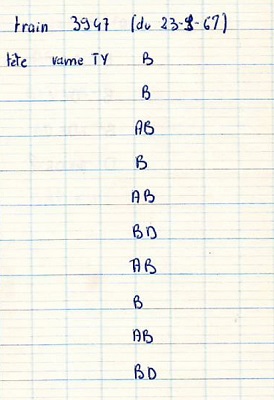 train 3947 (du 23-8-67)
tête rame TY B
B
AB
B
AB
BD
AB
B
AB
BD